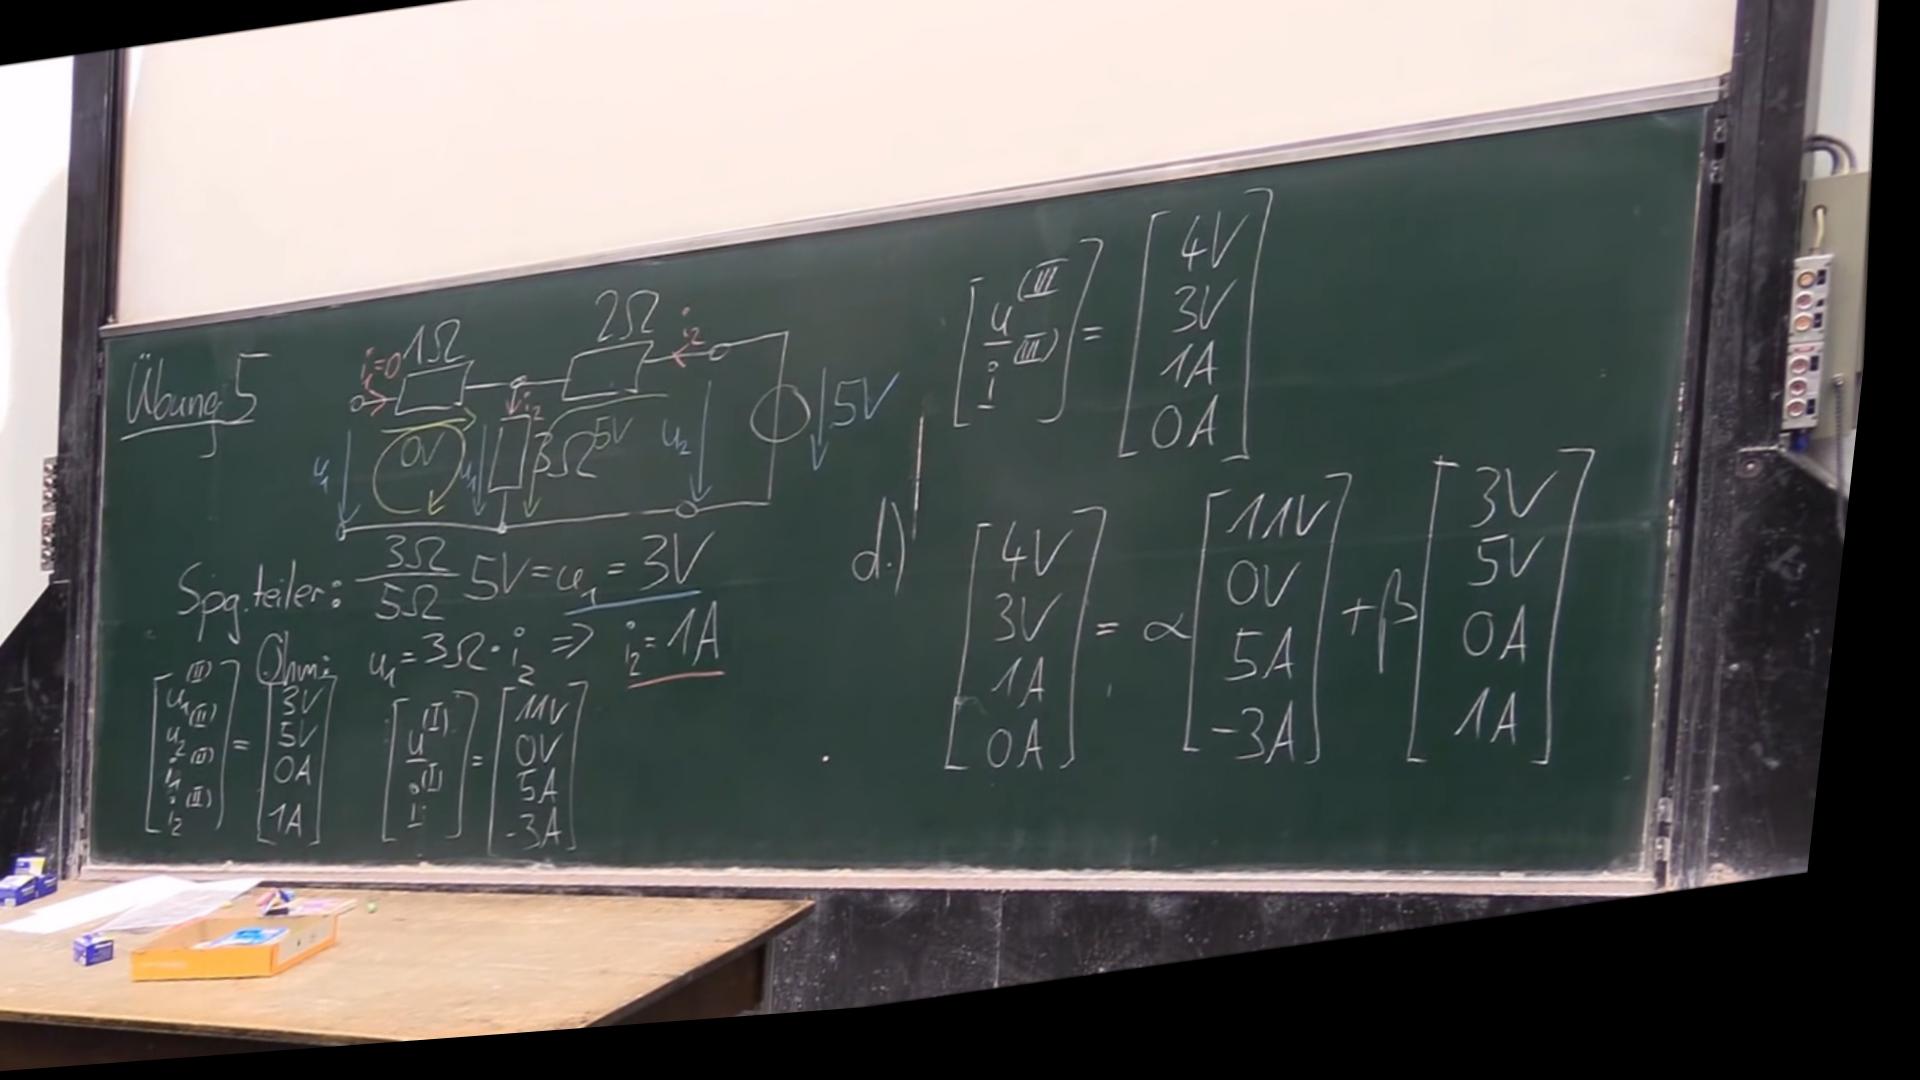 Übung 5
i₁=0 1Ω 2Ω i₂
i₂
u₁ 0V u₁ 3Ω 5V u₂ 5V
Spg.teiler: 3Ω/5Ω 5V = u₁ = 3V
Ohm: u₁ = 3Ω · i₂ ⇒ i₂ = 1A
[u₁^(II) u₂^(II) i₁^(II) i₂^(II)] = [3V 5V 0A 1A]
[u^(I) i^(I)] = [11V 0V 5A -3A]
[u^(III) i^(III)] = [4V 3V 1A 0A]
d.) [4V 3V 1A 0A] = α [11V 0V 5A -3A] + β [3V 5V 0A 1A]